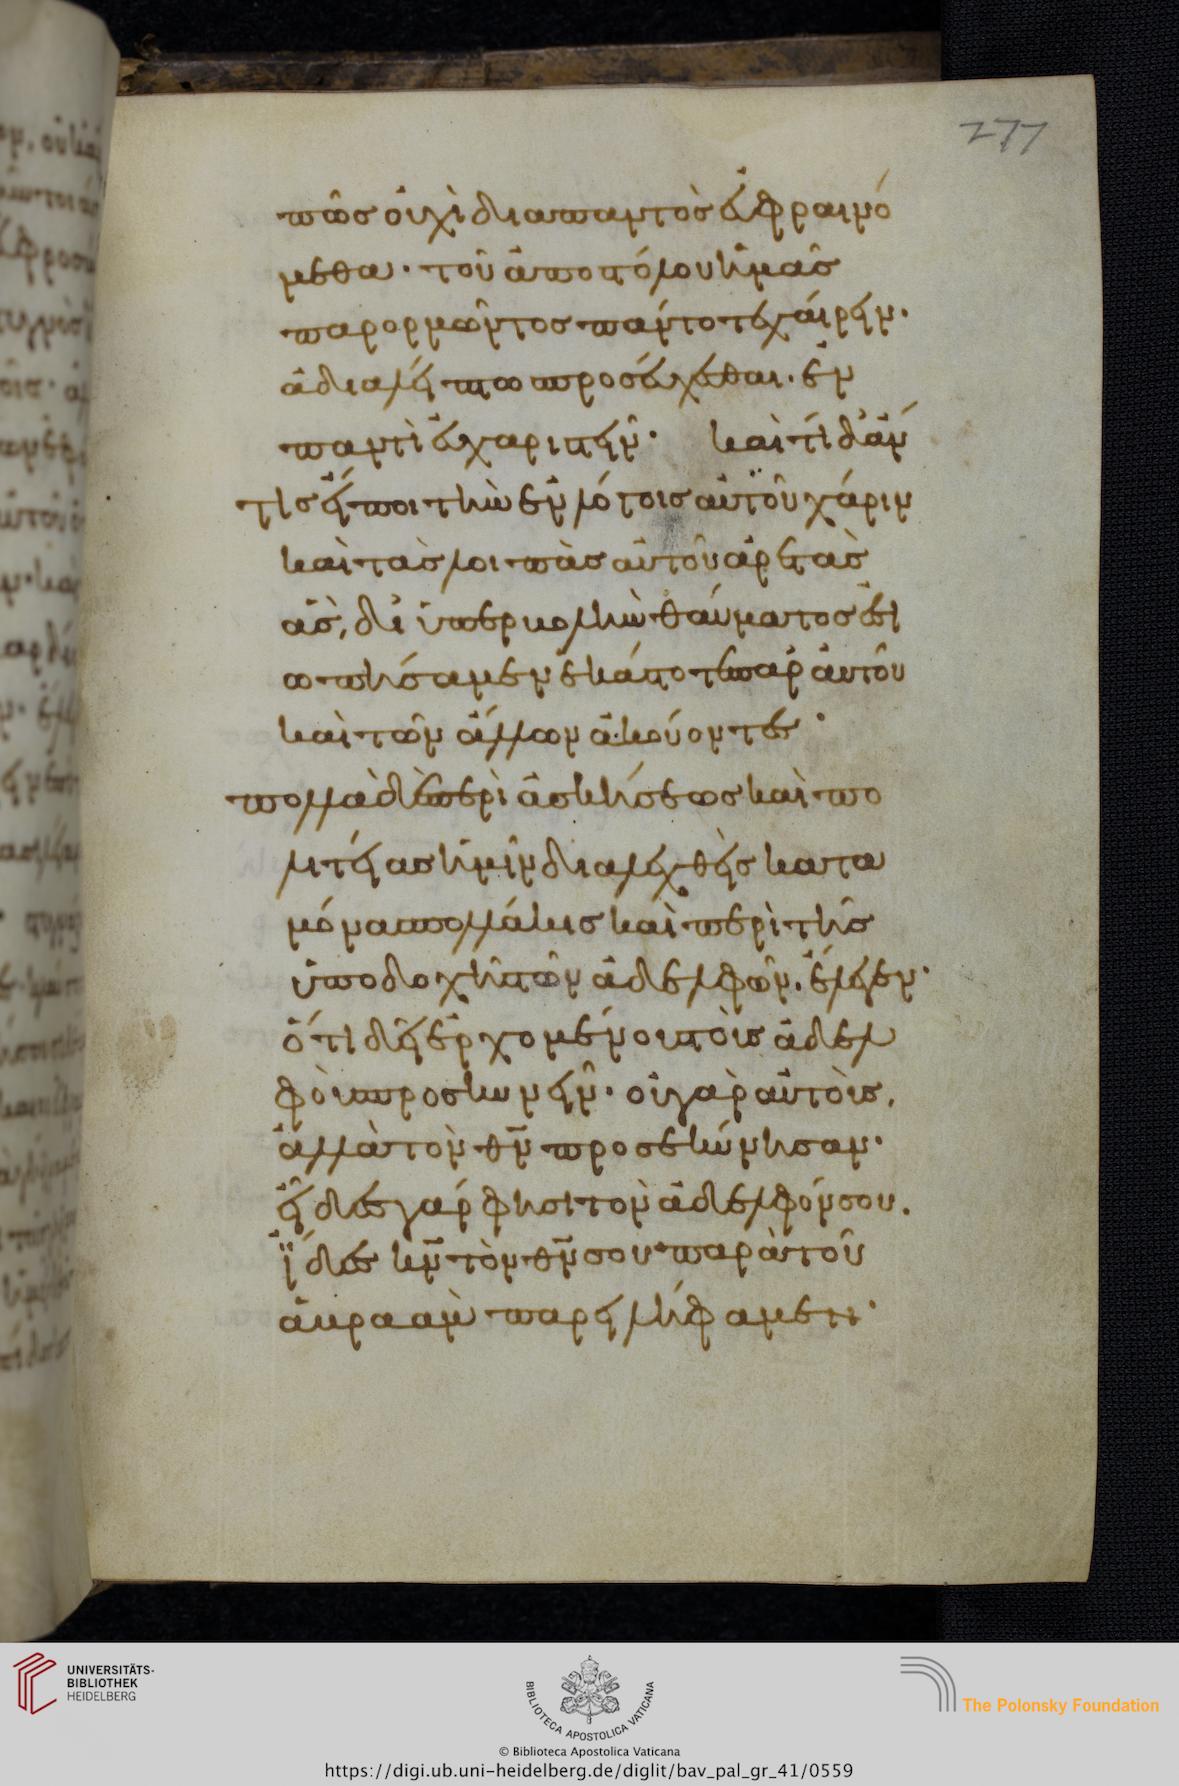 277
πῶς οὐχὶ διαπαντὸς εὐφραινό
μεθα· τοῦ ἀποστόλου ἡμᾶς
παρορμῶντος πάντοτε χαίρειν·
ἀδιαλείπτως προσεύχεσθαι· ἐν
παντὶ εὐχαριστεῖν· καὶ τί δ' ἄν
τις εἴποι τὴν ἐν λόγοις αὐτοῦ χάριν
καὶ τὰς λοιπὰς αὐτοῦ ἀρετὰς
ἃς, δι' ὑπερβολὴν θαύματος ἐσι
ωπήσαμεν ἑκάστοτε παρ' αὐτοῦ
καὶ τῶν ἄλλων ἀκούοντες·
πολλὰ δὲ περὶ ἀσκήσεως καὶ πο
λιτείας ἡμῖν διαλεχθεὶς κατα
μόνας πολλάκις καὶ περὶ τῆς
ὑποδοχῆς τῶν ἀδελφῶν. ἔλεγεν·
ὅτι δεῖ ἐρχομένους τοὺς ἀδελ
φοὺς προσκυνεῖν· οὐ γὰρ αὐτοὺς,
ἀλλὰ τὸν θν προσεκύνησαν·
εἶδες γάρ φησι τὸν ἀδελφόν σου.
ἴδες κν τὸν θν σου παρὰ τοῦ
ἀβραὰμ παρειλήφαμεν·
UNIVERSITÄTS-
BIBLIOTHEK
HEIDELBERG
BIBLIOTECA APOSTOLICA VATICANA
The Polonsky Foundation
© Biblioteca Apostolica Vaticana
https://digi.ub.uni-heidelberg.de/diglit/bav_pal_gr_41/0559